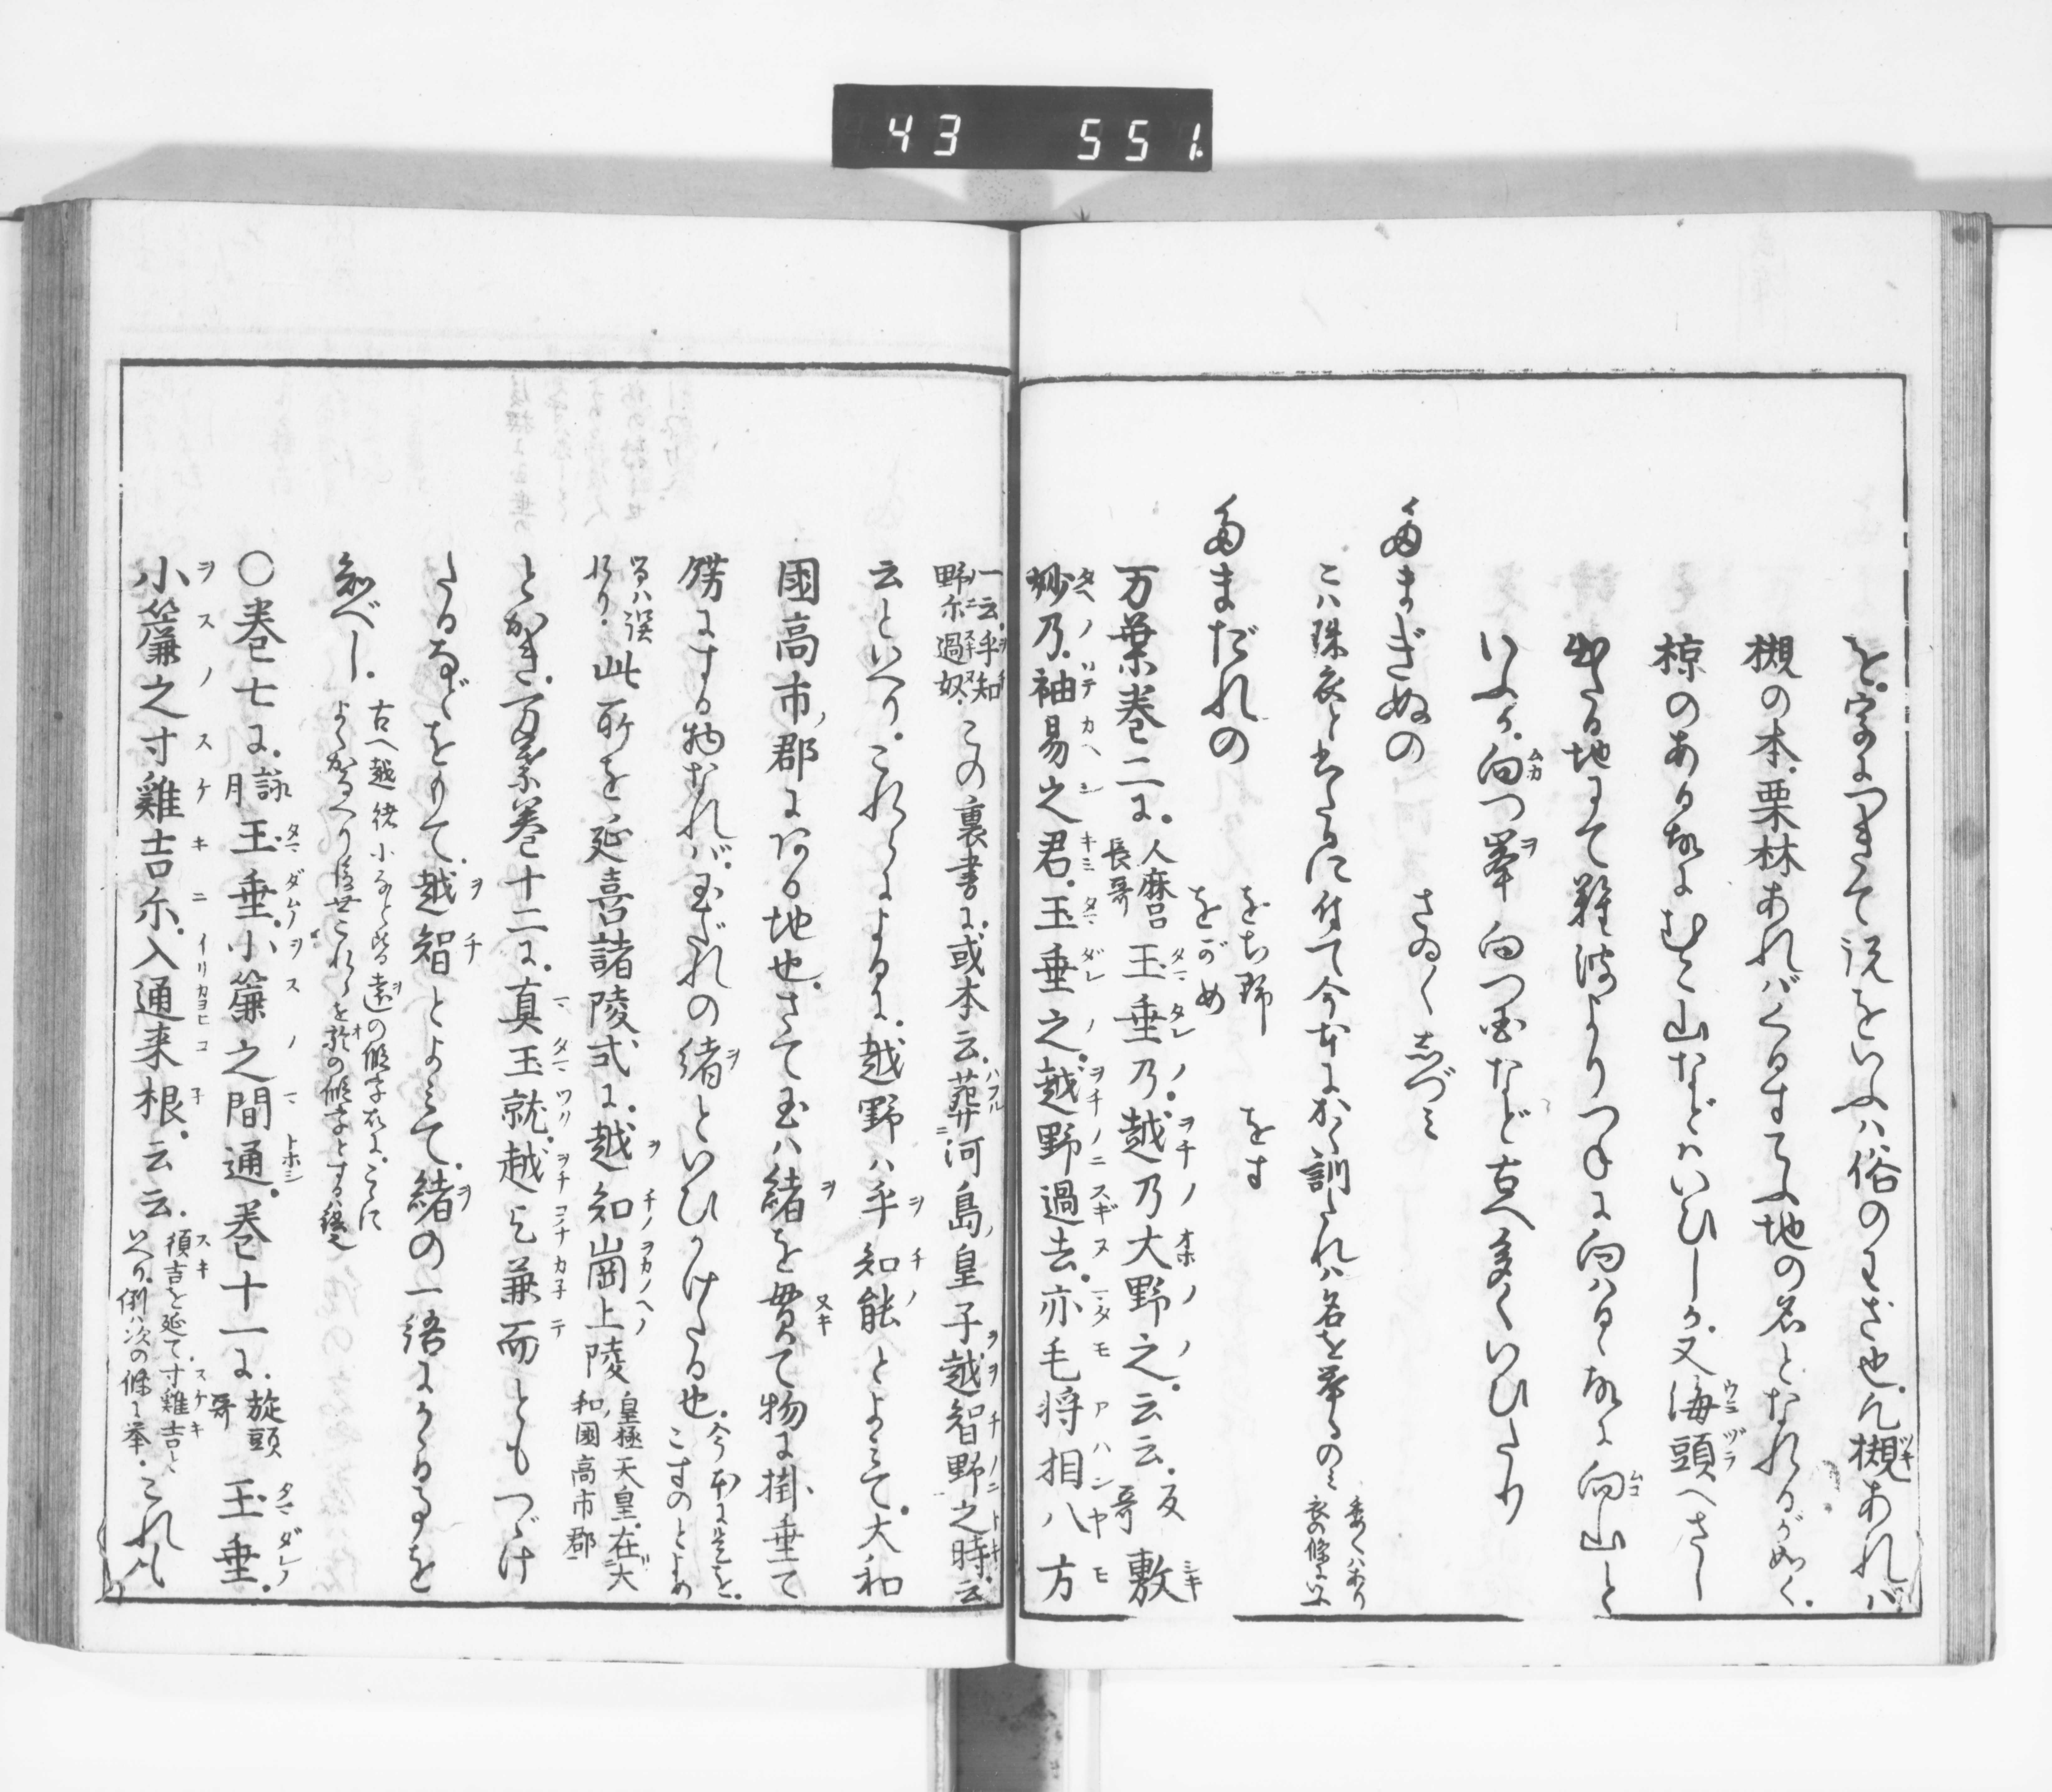 43 551
を。字につきて説をいふハ俗のわざ也。凡槻あれバ
槻の本。栗林あれバくるすてふ地の名となれるが如く。
椋のある故にむこ山などハいひしか。又海頭へさし
出たる地にて難波よりつねに向ハるゝ故に向山と
いふか。向つ峯向つ国など古へ多くいひたり
たまぎぬの　さゐ〳〵しづみ
こハ珠衣と書たるに付て今本にかく訓たれハ名を挙るのミ
委しくハあり衣の條にいふ
たまだれの　をち野　をす
をがめ
万葉巻二に。人麻呂長哥玉垂乃。越乃大野之。云云。反哥敷
妙乃。袖易之君。玉垂之。越野過去。亦毛将相八方
一云。乎知野尓過奴。この裏書に。或本云。葬河島皇子越智野之時。云
云といへり。これらによるに。越野ハ乎知能とよみて。大和
國高市郡にある地也。さて玉ハ緒を貫て物に掛垂て
餝にする物なれバ。玉だれの緒といひかけたる也。今本に是を。こすのとよめ
るハ誤れり。此所を延喜諸陵式に。越知岡上陵皇極天皇。在大和國高市郡
とかき。万葉巻十二に。真玉就。越乞兼而ともつゞけ
たるなどをもて。越智とよみて。緒の一語にかゝる事を
知べし。
〇巻七に。詠月玉垂。小簾之間通。巻十一に。旋頭哥玉垂。
小簾之寸雞吉尓。入通来根。云云。須吉を延て寸雞吉といへり。例ハ次の條に挙。これハ